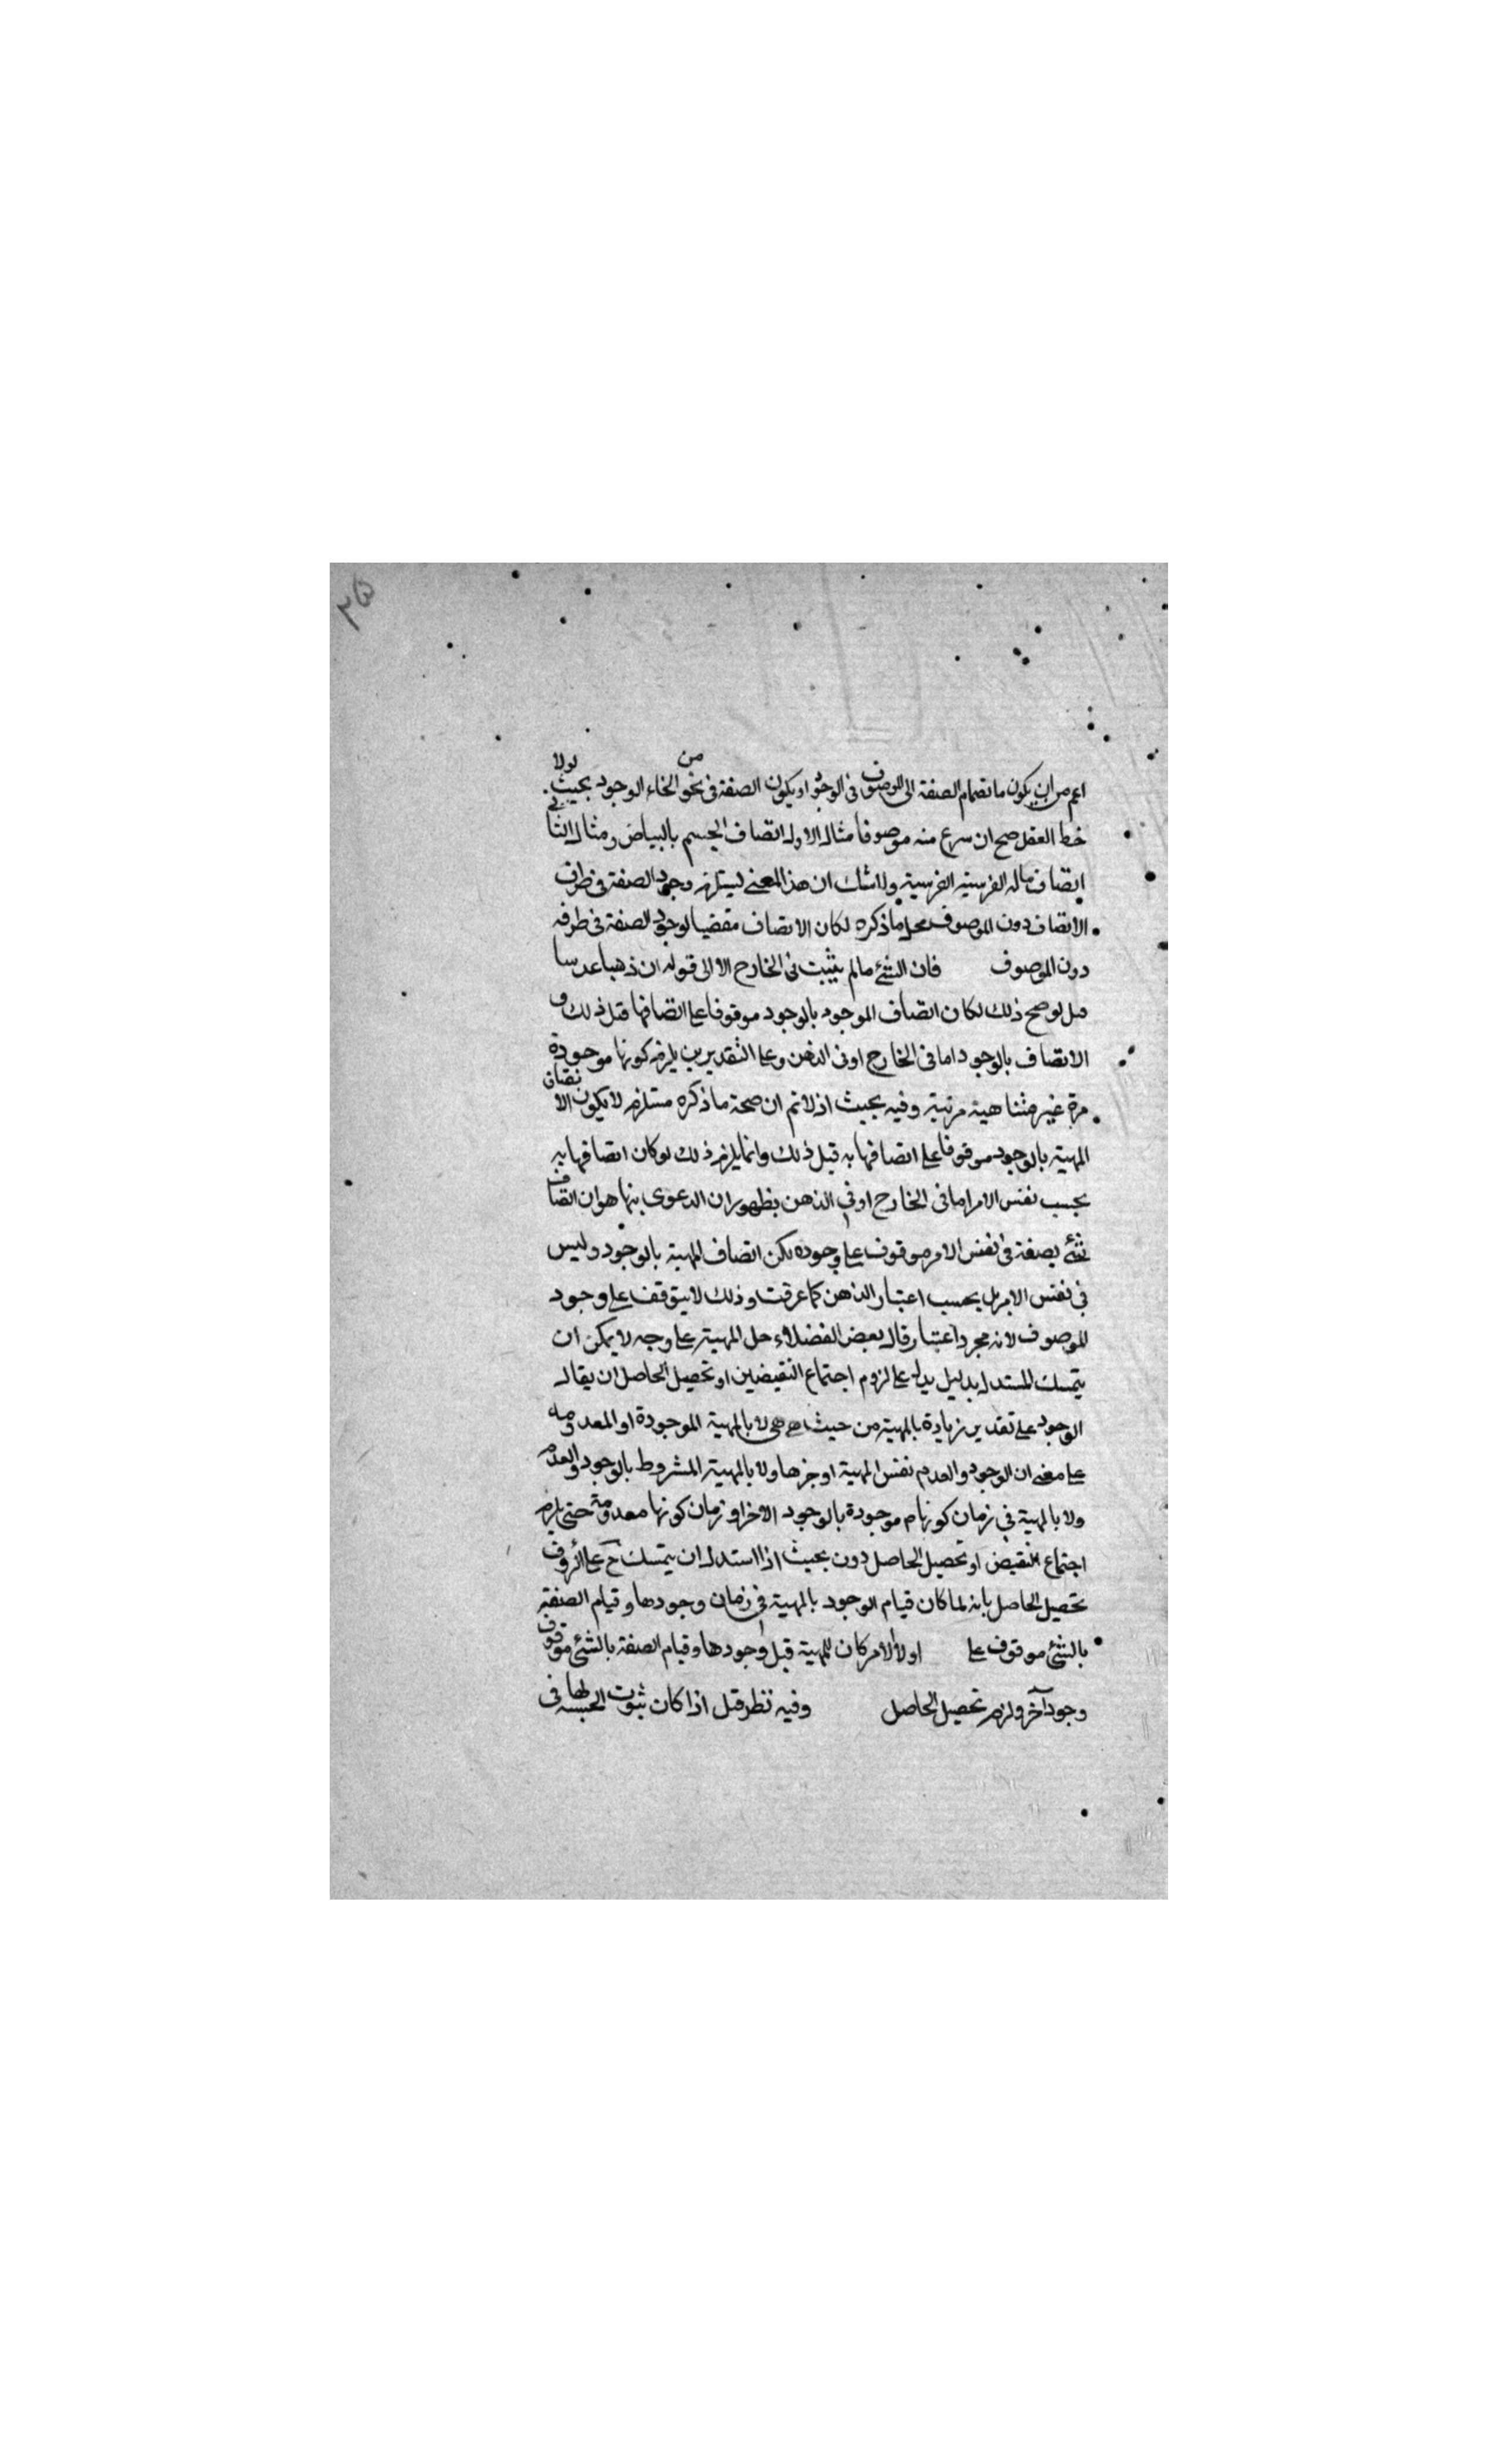 اعم من ان يكون بانضمام الصفة الى الموصوف فى الوجود او يكون الصفة فى نحو من انحاء الوجود بحيث لولا
خط العقل صح ان منه موصوفا مثال الاول اتصاف الجسم بالبياض ومثال الثانى
اتصاف ماله الفرسية الفرسية ولا شك ان هذا المعنى ليستلزم وجود الصفة فى ظرف
الاتصاف دون الموصوف ما ذكره لكان الاتصاف مقضيا لوجود الصفة فى ظرفه
دون الموصوف فان الشئ ما لم يثبت فى الخارج الا الى قوله ان ذهبا
لو صح ذلك لكان اتصاف الموجود بالوجود موقوفا على اتصافها قبل ذلك و
الاتصاف بالوجود اما فى الخارج او فى الذهن وعلى التقديرين يلزم كونها موجودة
مرة غير متناهية مرتبة وفيه بحيث اذ لا تم ان صحة ما ذكره مستلزم لا يكون الا
المهية بالوجود موقوفا على اتصافها به قبل ذلك وانما يلزم ذلك لو كان اتصافها به
بحسب نفس الامر اما فى الخارج او فى الذهن بظهور ان الدعوى بنها هو ان اتصاف
شئ بصفة فى نفس الامر موقوف على وجوده لكن اتصاف المهية بالوجود وليس
فى نفس الامر بل بحسب اعتبار الذهن كما عرفت وذلك لا يتوقف على وجود
الموصوف لانه مجرد اعتبار قال بعض الفضلاء حل المهية على وجه لا يمكن ان
يتمسك المستدل بدليل يدل على لزوم اجتماع النقيضين او تحصيل الحاصل ان يقال
الوجود على تقدير زيادة بالمهية من حيث هى هى لا بالمهية الموجودة او المعدومه
على معنى ان الوجود والعدم نفس المهية او جزها ولا بالمهية المشروط بالوجود والعدم
ولا بالمهية فى زمان كونها م موجودة بالوجود الاخر او زمان كونها معدومة حتى يلزم
اجتماع النقيض او تحصيل الحاصل دون بحيث اذا استدل ان يتمسك ح على
تحصيل الحاصل بانه لما كان قيام الوجود بالمهية فى زمان وجودها وقيام الصفة
بالشئ موقوف على اولا لامر كان للمهية قبل وجودها وقيام الصفة بالشئ موقوف
وجود آخر ولزم تحصيل الحاصل وفيه نظر قبل اذا كان ثبوت لها فى